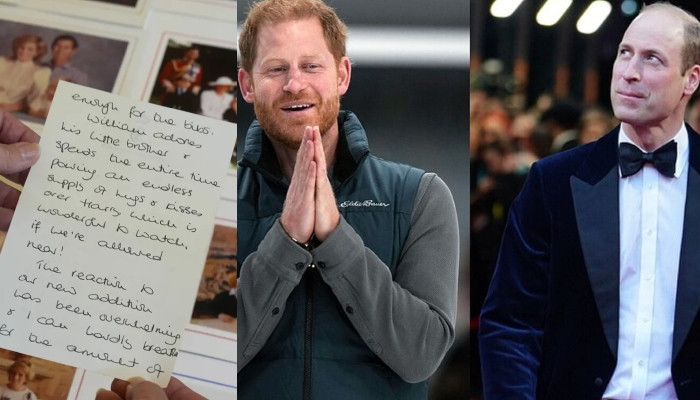 enough for the bills.
William adores
his little brother &
spends the entire time
pouring an endless
supply of hugs & kisses
over Harry which is
wonderful to watch,
if we're allowed
near!
The reaction to
our new addition
has been overwhelming
& I can hardly breathe
the amount of
Eddie Bauer